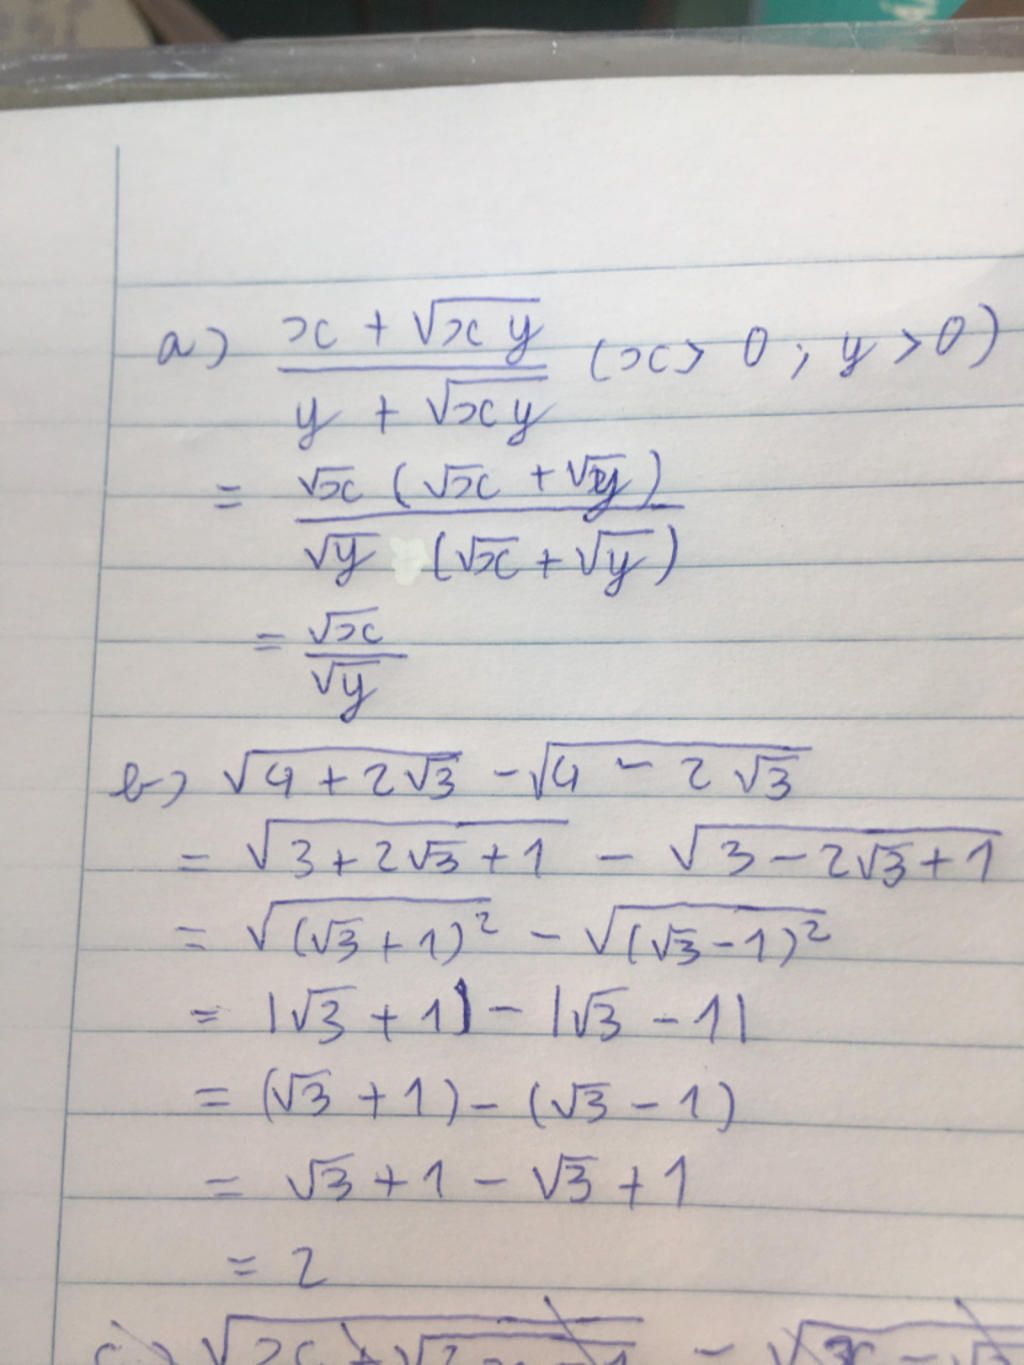 a) \frac{x + \sqrt{xy}}{y + \sqrt{xy}} (x > 0 ; y > 0)
= \frac{\sqrt{x} (\sqrt{x} + \sqrt{y})}{\sqrt{y} (\sqrt{x} + \sqrt{y})}
= \frac{\sqrt{x}}{\sqrt{y}}
b) \sqrt{4 + 2\sqrt{3}} - \sqrt{4 - 2\sqrt{3}}
= \sqrt{3 + 2\sqrt{3} + 1} - \sqrt{3 - 2\sqrt{3} + 1}
= \sqrt{(\sqrt{3} + 1)^2} - \sqrt{(\sqrt{3} - 1)^2}
= |\sqrt{3} + 1| - |\sqrt{3} - 1|
= (\sqrt{3} + 1) - (\sqrt{3} - 1)
= \sqrt{3} + 1 - \sqrt{3} + 1
= 2